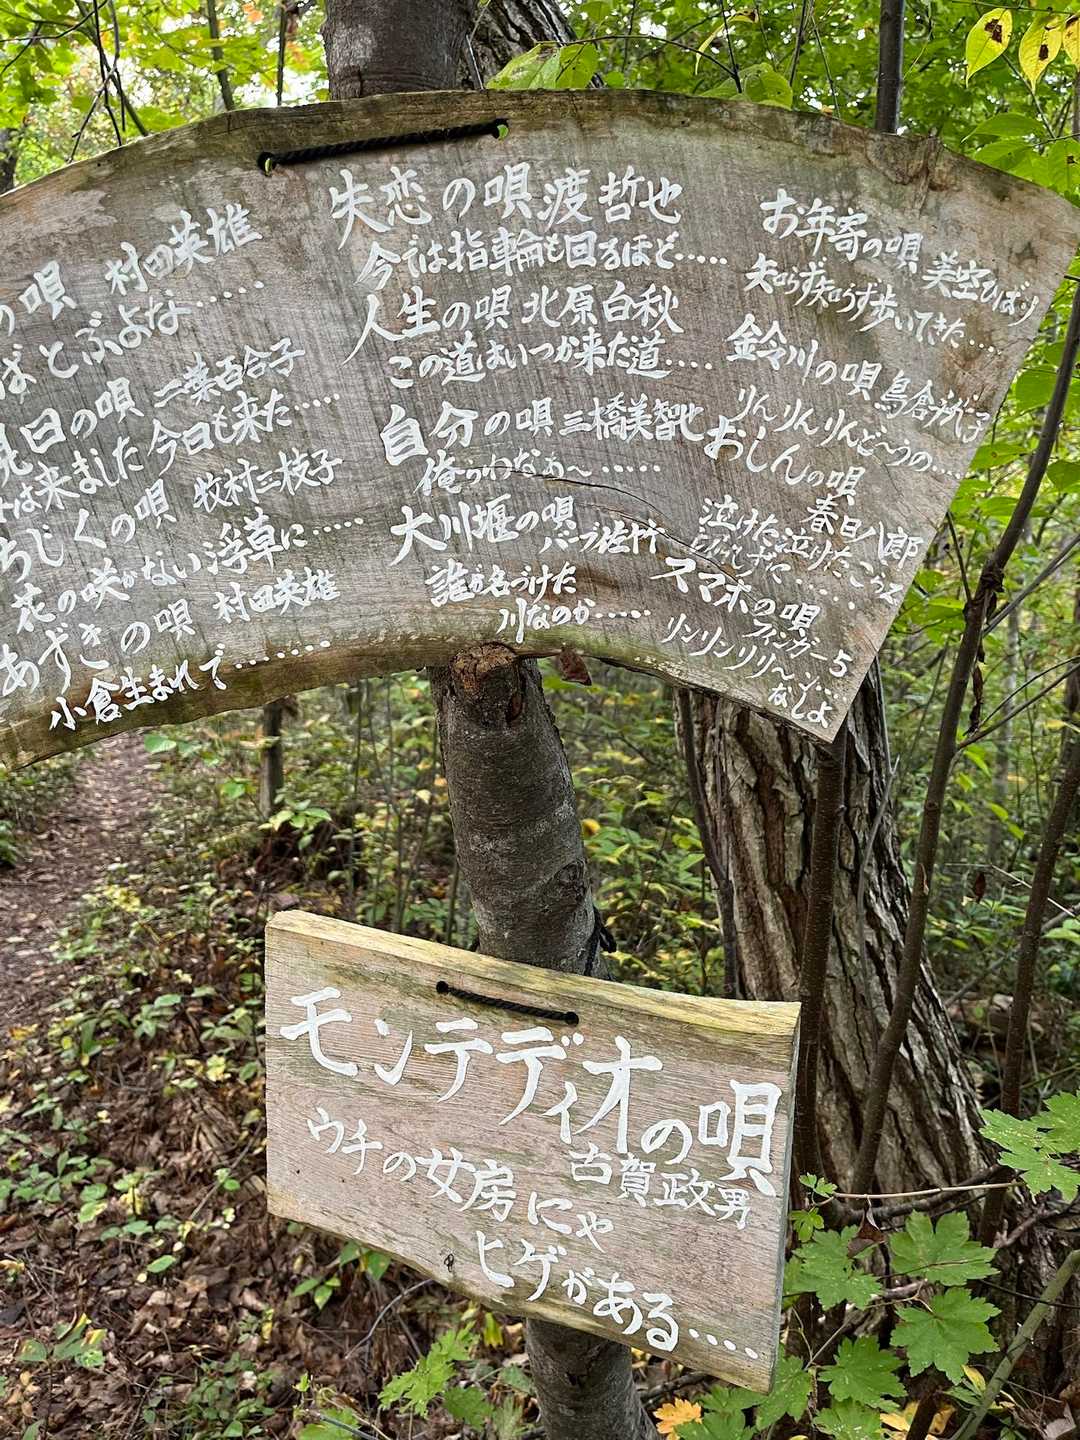 の唄 村田英雄
ばとぶよな……
見日の唄 二葉百合子
は来ました今日も来た……
ちじくの唄 牧村三枝子
花の咲かない浮草に……
あずきの唄 村田英雄
小倉生まれで………
失恋の唄 渡哲也
今では指輪も回るほど……
人生の唄 北原白秋
この道はいつか来た道……
自分の唄 三橋美智也
俺らわなぁ〜……
大川堰の唄
バーブ佐竹
誰が名づけた
川なのか……
お年寄の唄 美空ひばり
知らず知らず歩いてきた……
鈴川の唄 鳥倉千代子
りんりんりんど〜うの…
おしんの唄
春日八郎
泣けた泣けたこらえ
きれずに……
スマホの唄
フィンガー5
リンリンリリ〜ン…
なしよ
モンテディオの唄
古賀政男
ウチの女房にゃ
ヒゲがある……